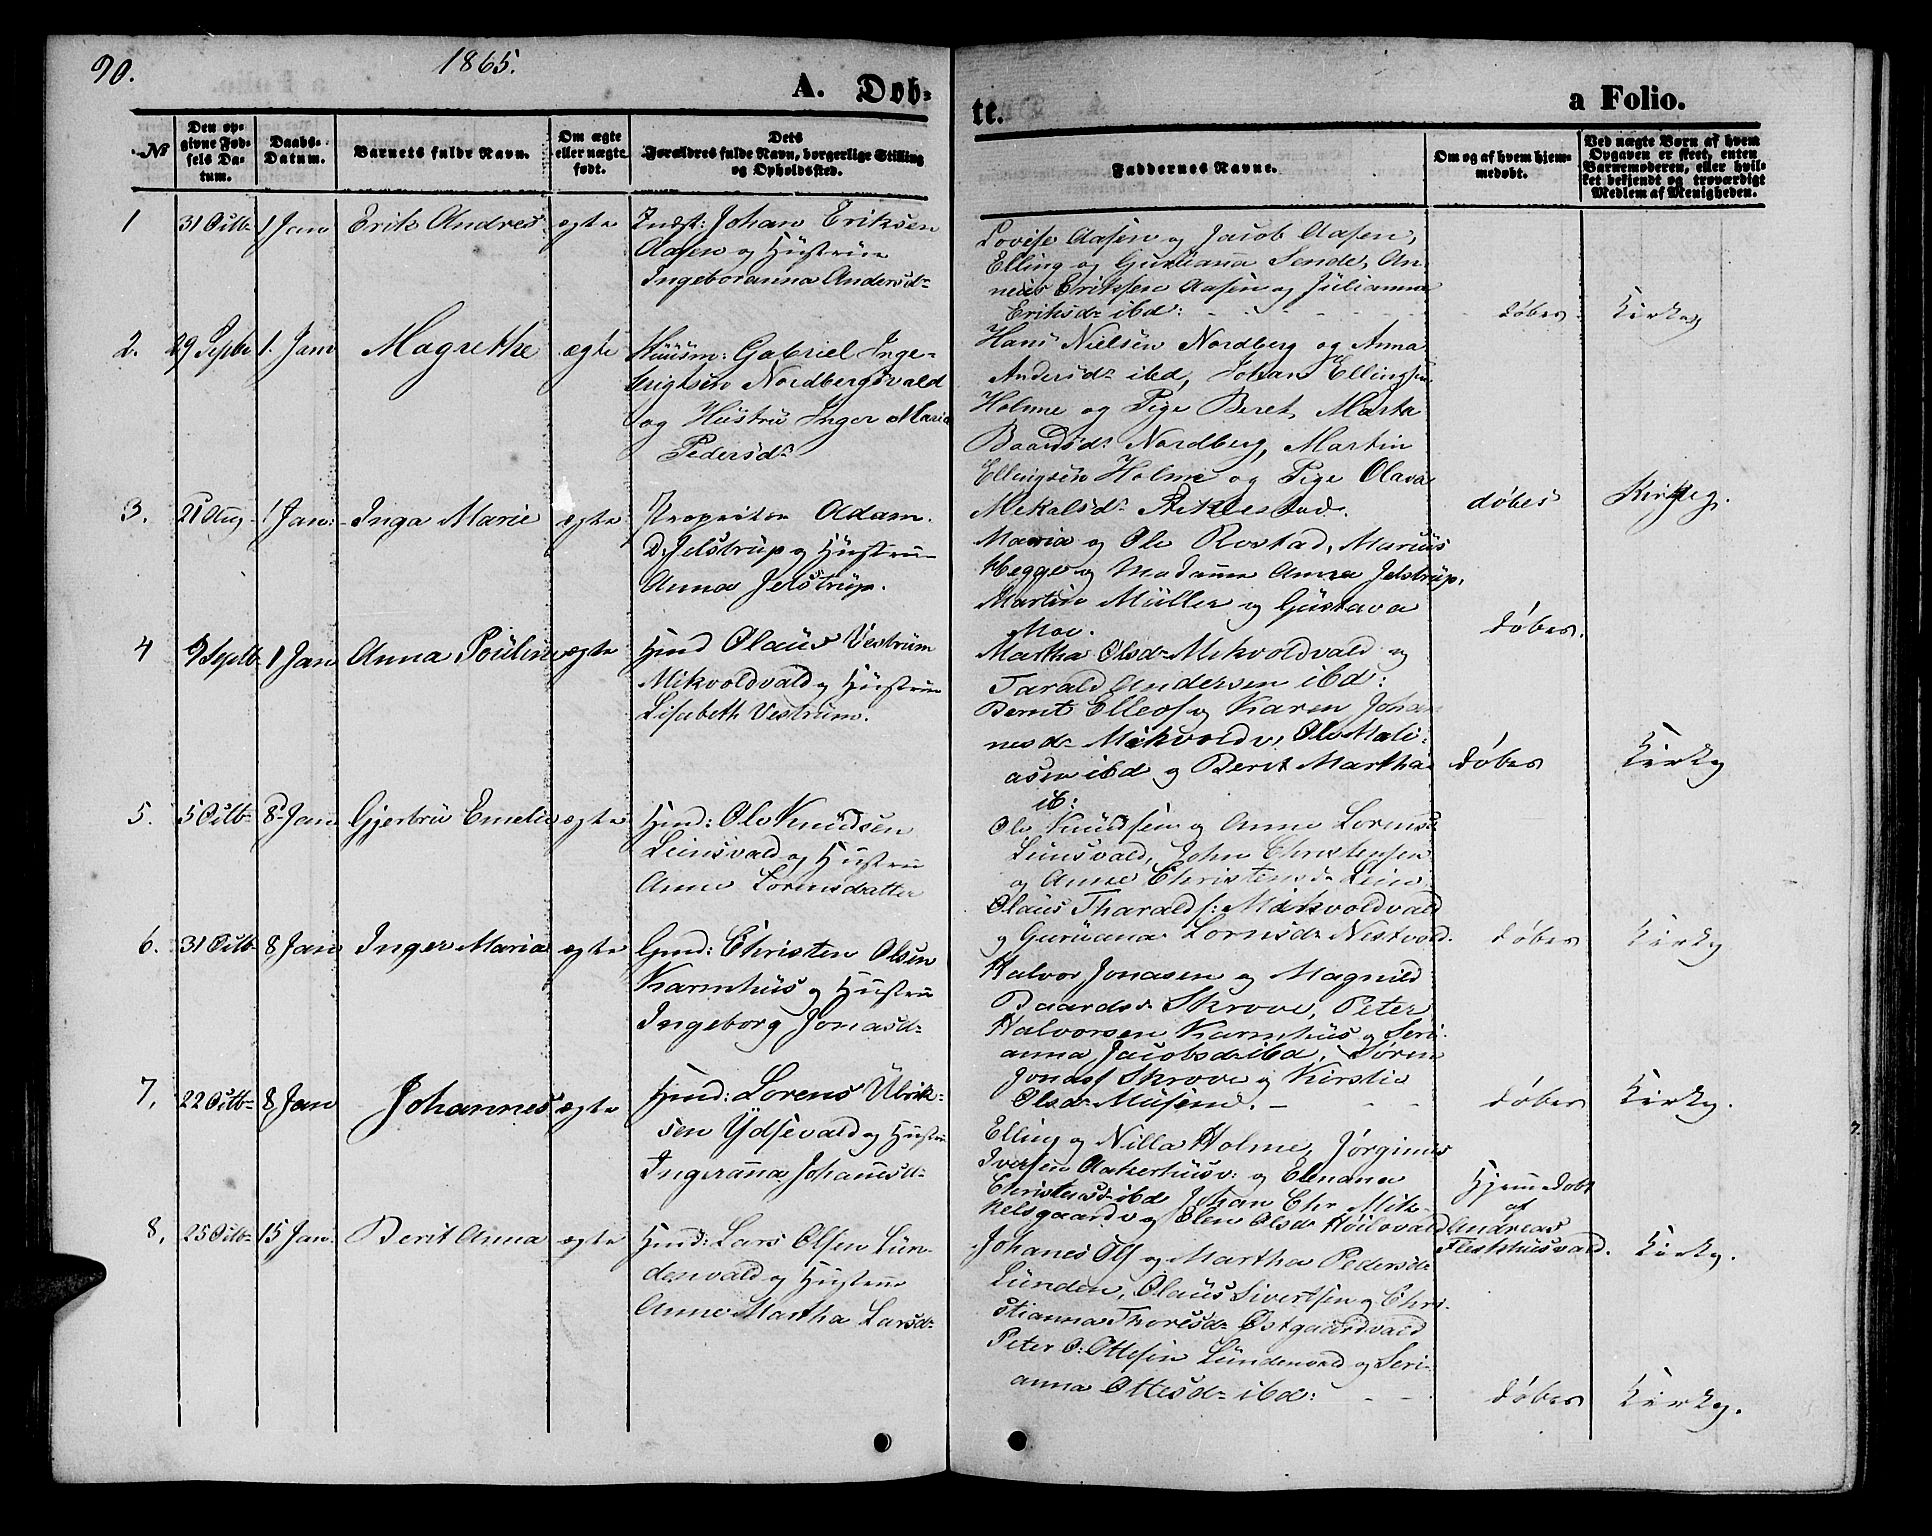 90.
1865.
A. Døb-
te.
a Folio.
№
Den op-
givne Fød-
sels Da-
tum.
Daabs-
Datum.
Barnets fulde Navn.
Om ægte
eller uægte
født.
Dets
Forældres fulde Navn, borgerlige Stilling
og Opholdssted.
Faddernes Navne.
Om og af hvem hjem-
medøbt.
Ved uægte Børn af hvem
Opgaven er skeet, enten
Barnemoderen, eller hvil-
ket bekjendt og troværdigt
Medlem af Menigheden.
1
31 Octb
1 Jan
Erik Andres
ægte
Indst: Johan Eriksen
Aasen og Hustrue
Ingeboranna Andersd
Lovise Aasen og Jacob Aasen,
Elling og Gurianna Sende, An
neus Eriksen Aasen og Julianna
Eriksd ibd:
døbes
Kirkeg
2.
29 Septbr
1. Jan
Magrethe
ægte
Huusm: Gabriel Inge-
brigtsen Nordbergsvald
og Hustru Inger Maria
Pedersd
Hans Nielsen Nordberg og Anna
Andersd ibd, Johan Ellingsen
Holme og Pige Beret Marta
Baardsd Nordberg, Martin
Ellingsen Holme og Pige Olava
Mekalsd Reklestad.
døbes
Kirkeg.
3.
21 Aug
1 Jan:
Inga Marie
ægte
Propritær Adam
D. Jelstrup og Hustrue
Anna Jelstrup.
Maria og Ole Rostad, Marius
Hegge og Madamme Anna Jelstrup,
Martin Müller og Gustava
Moe.
døbes.
4
9 Septb
1 Jan
Anna Pouline
ægte
Hmd Olaus Vestrum
Mikvoldvald og Hustrue
Lisabeth Vestrum.
Martha Olsd Mikvoldvald og
Tarald Andersen ibd:
Bernt Ellefs og Karen Johan
nesd Mikvoldv, Ole Mali-
asen ibd og Beret Martha
ib:
døbes
Kirkeg
5.
5 Octb
8 Jan
Gjertru Emelie
ægte
Hmd: Ole Knudsen
Leinsvald og Hustrue
Anne Lorensdatter
Ole Knudsen og Anne Lorensd
Leinsvald, John Christensen
og Anne Christensd Lein
Olaus Tharalds: Mikvoldvald
og Guruana Lornsd Nestvold.
døbes
Kirkeg
6.
31 Octb
8 Jan
Inger Maria
ægte
Gmd: Christen Olsen
Karmhus og Hustrue
Ingeborg Jonasd
Halvor Jonasen og Magnild
Baardsd Skrove, Peter
Halvorsen Karmhus og Seri-
anna Jacobsd ibd, Søren
Jonass Skrove og Kirstie
Olsd Musem.
døbes
Kirkeg.
7.
22 Octb
8 Jan
Johannes
ægte
Hmd: Lorens Ulrik-
sen Ydsevald og Hustrue
Ingeranna Johanesd
Elling og Nilla Holme, Jørginus
Iversen Aakerhusv: og Elenana
Christensd ibd Johan Chr Mik-
kelsgaardv og Elen Olsd Høilovald
Hjemmedøbt
af
Andreas
Fleskhusvald.
Kirkeg.
8.
25 Octb
15 Jan
Berit Anna
ægte
Hmd: Lars Olsen Lun-
denvald og Hustrue
Anne Martha Larsd
Johanes Ols og Martha Pedersd
Lunden, Olaus Sivertsen og Chri-
stianna Thoresd Østgaardvald
Peter O: Ottesen Lundenvald og Seri-
anna Ottesd ibd:
døbes
Kirkeg.
7.